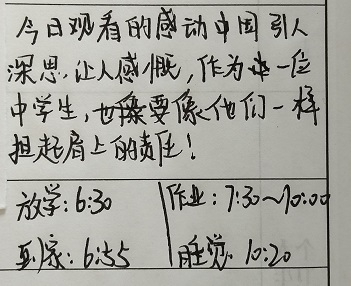 今日观看的感动中国引人
深思,让人感慨,作为一位
中学生,也要像他们一样
担起肩上的责任!
放学:6:30 作业:7:30~10:00
到家:6:55 睡觉:10:20